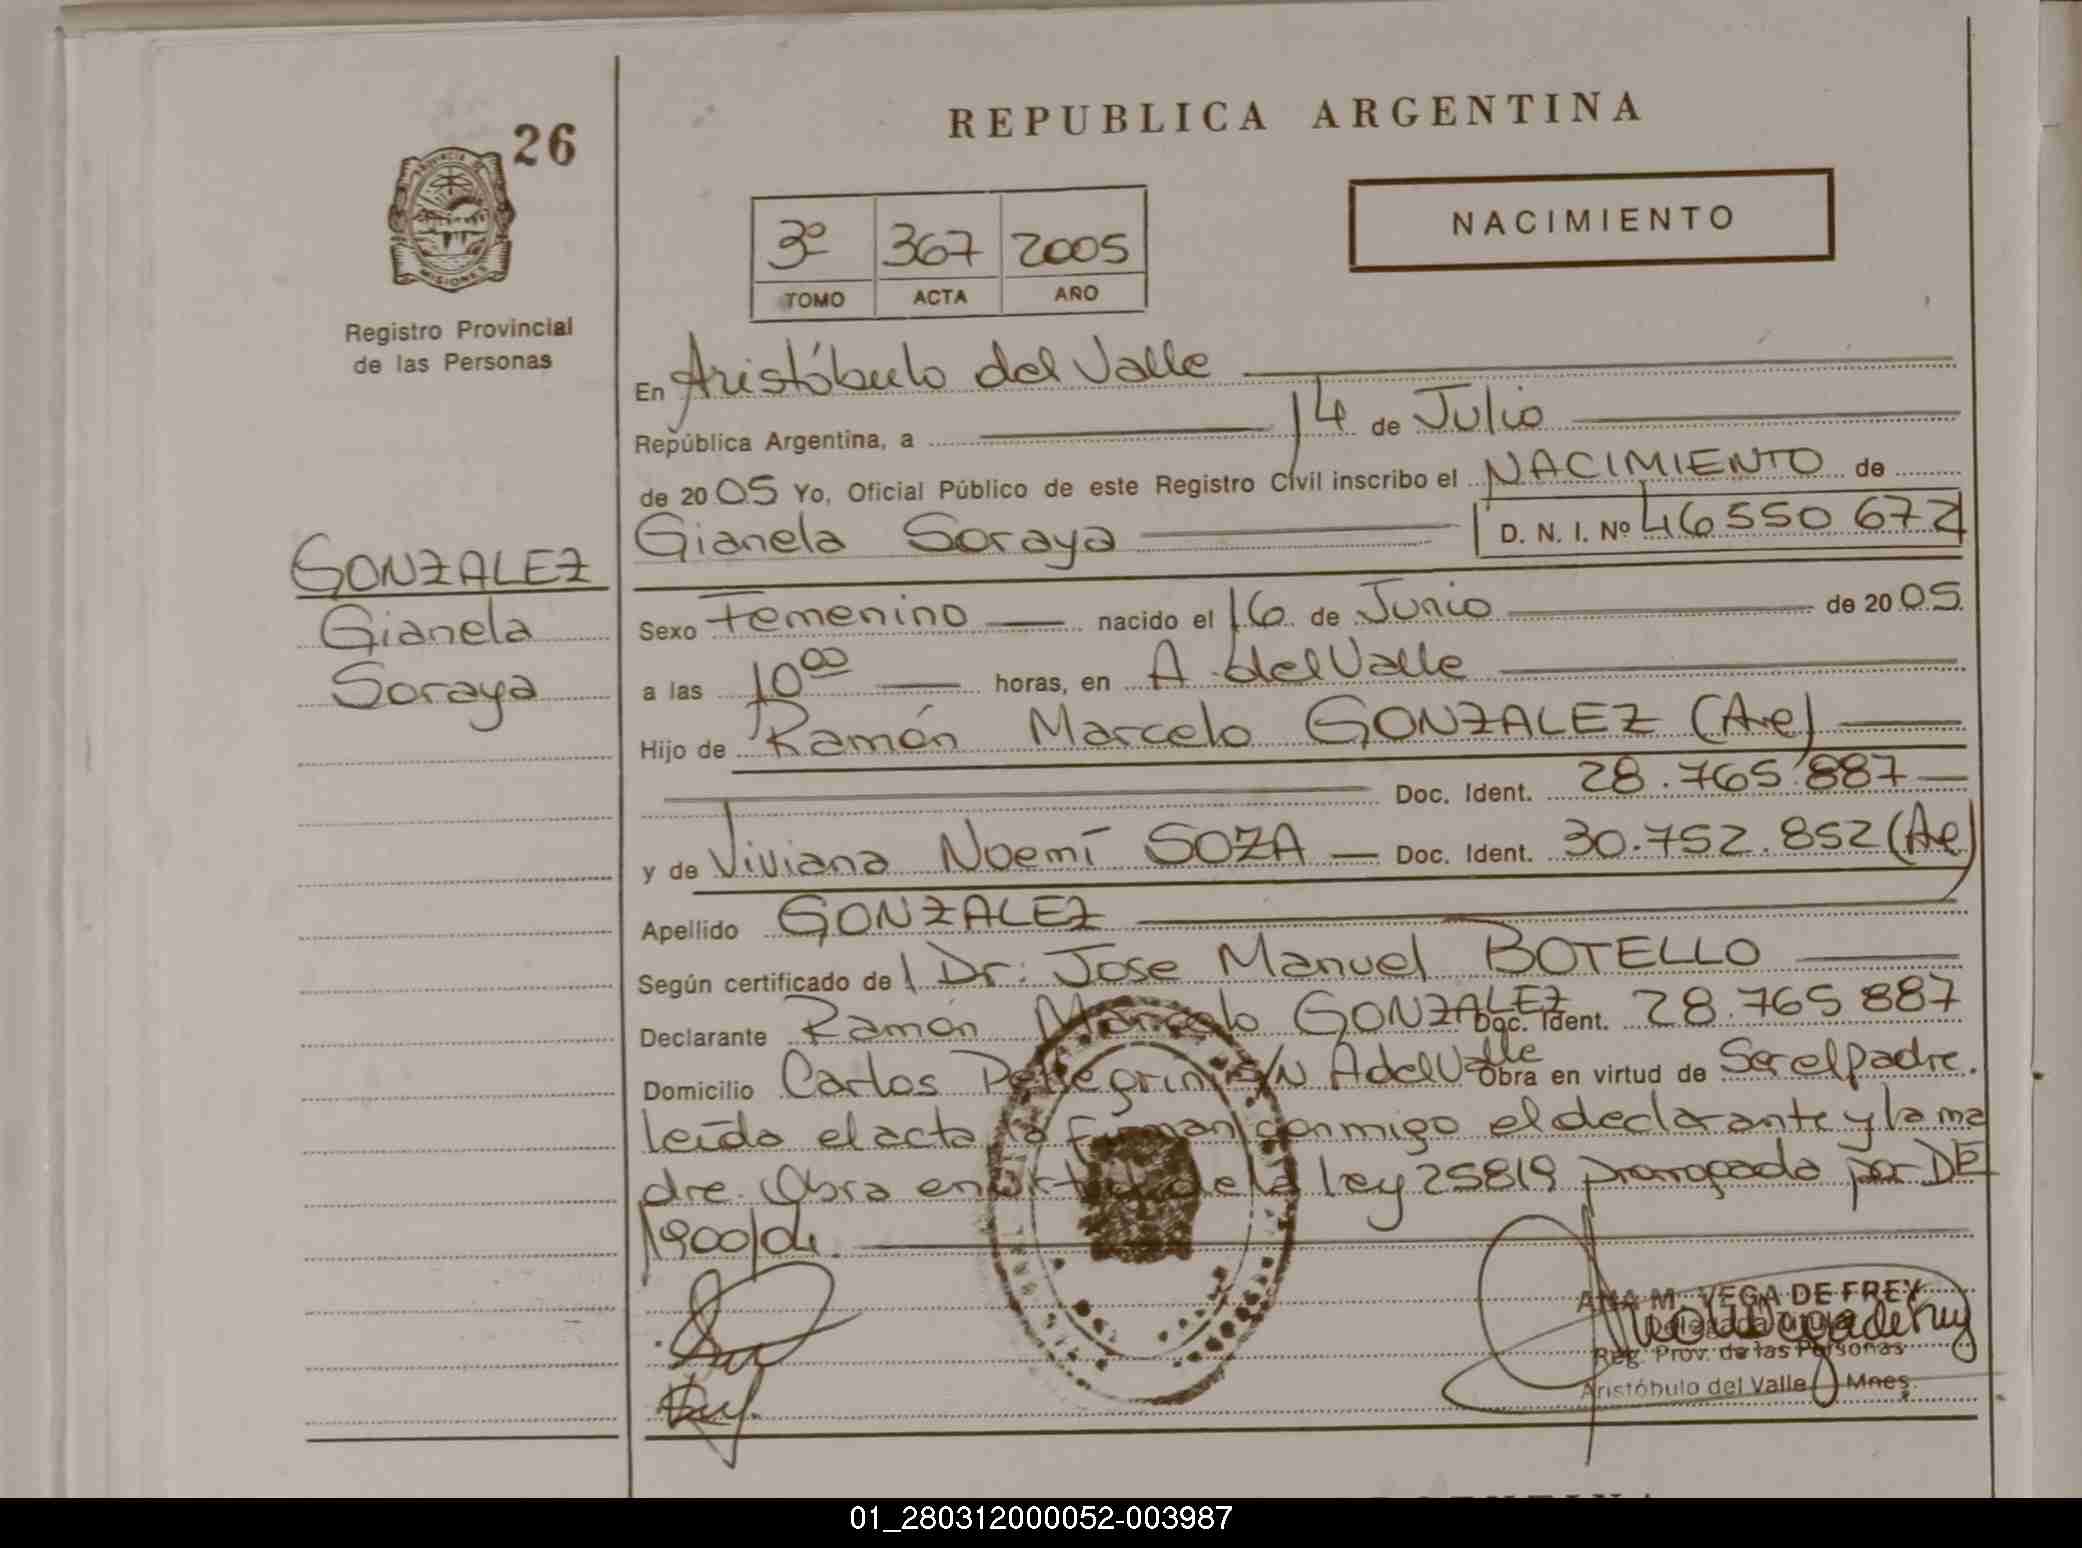 26
PROVINCIA DE
MISIONES
Registro Provincial
de las Personas
GONZALEZ
Gianela
Soraya
REPUBLICA ARGENTINA
3º 367 2005
TOMO ACTA AÑO
NACIMIENTO
En Aristóbulo del Valle
República Argentina, a 14 de Julio
de 2005 Yo, Oficial Público de este Registro Civil inscribo el NACIMIENTO de
Gianela Soraya D. N. I. Nº 46550 672
Sexo Femenino nacido el 16 de Junio de 2005
a las 10 00 horas, en A. del Valle
Hijo de Ramón Marcelo GONZALEZ (Ae)
Doc. Ident. 28.765.887
y de Viviana Noemí SOZA Doc. Ident. 30.752.852 (Ae)
Apellido GONZALEZ
Según certificado de Dr: Jose Manuel BOTELLO
Declarante Ramón Marcelo GONZALEZ Doc. Ident. 28.765 887
Domicilio Carlos Pellegrini S/N A del Valle Obra en virtud de Ser el padre.
leída el acta la firman conmigo el declarante y la ma
dre. Obra en virtud de la ley 25819 prorrogada por DE
1900/04.
ANA M. VEGA DE FREY
Reg. Prov. de las Personas
Aristóbulo del Valle Mnes.
01_280312000052-003987